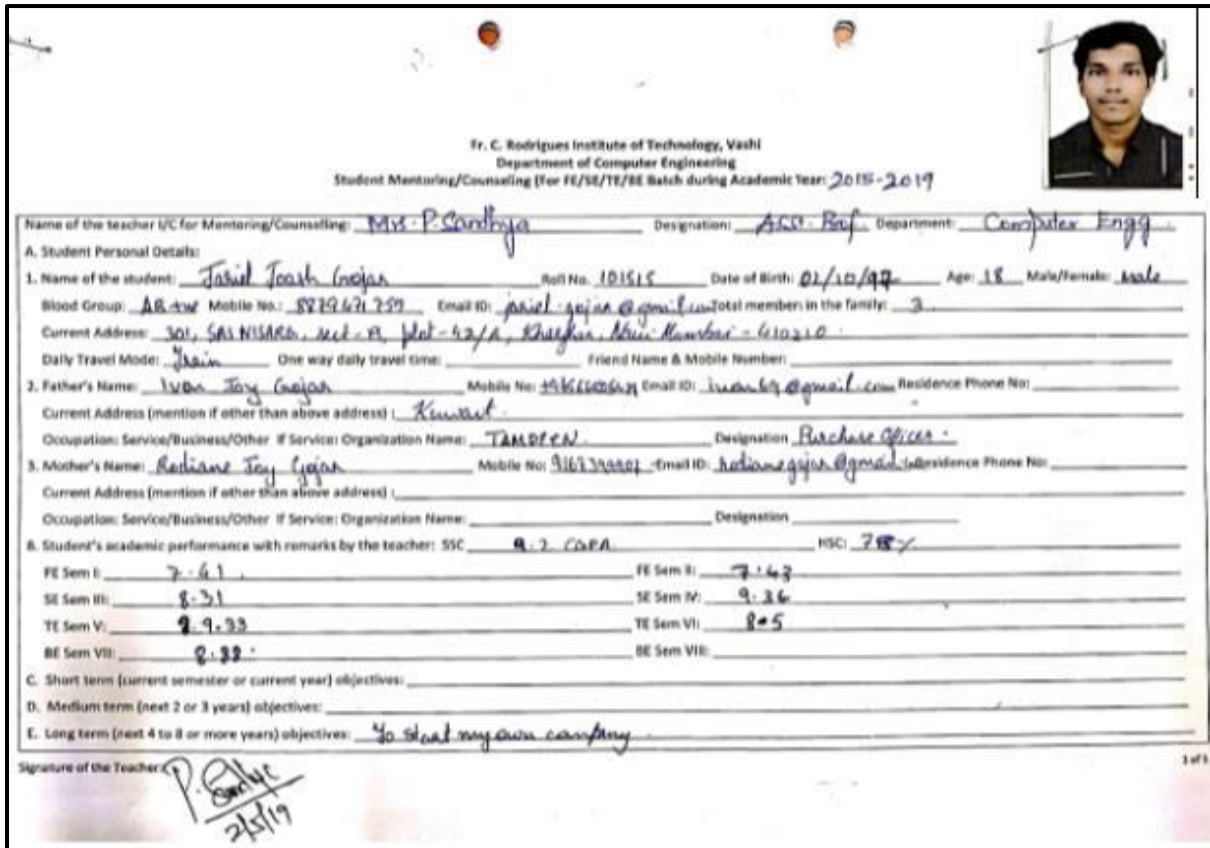 Fr. C. Rodrigues Institute of Technology, Vashi
Department of Computer Engineering
Student Mentoring/Counseling (For FE/SE/TE/BE Batch during Academic Year: 2015-2019
Name of the teacher I/C for Mentoring/Counselling: Mrs. P. Sandhya Designation: Asst. Prof. Department: Computer Engg.
A. Student Personal Details:
1. Name of the student: Jasiel Joash Gojar Roll No. 101515 Date of Birth: 01/10/97 Age: 18 Male/Female: Male
Blood Group: AB+ve Mobile No.: Email ID: Total member in the family: 3
Current Address: 301, SAI NISARG, sect-A, plot-42/A, Kharghar, Navi Mumbai - 410210.
Daily Travel Mode: Train One way daily travel time: Friend Name & Mobile Number:
2. Father's Name: Ivan Joy Gojar Mobile No: Email ID: Residence Phone No:
Current Address (mention if other than above address) : Kuwait.
Occupation: Service/Business/Other If Service: Organization Name: TAMDEEN Designation Purchase Officer.
3. Mother's Name: Joy Gojar Mobile No: Email ID: Residence Phone No:
Current Address (mention if other than above address) :
Occupation: Service/Business/Other If Service: Organization Name: Designation
B. Student's academic performance with remarks by the teacher: SSC 9.2 CGPA HSC:
FE Sem I: 7.41. FE Sem II: 7.43
SE Sem III: 8.31 SE Sem IV: 9.36
TE Sem V: 9.33 TE Sem VI: 8.5
BE Sem VII: BE Sem VIII:
C. Short term (current semester or current year) objectives:
D. Medium term (next 2 or 3 years) objectives:
E. Long term (next 4 to 8 or more years) objectives: To start my own company.
Signature of the Teacher:
2/5/19
1 of 3